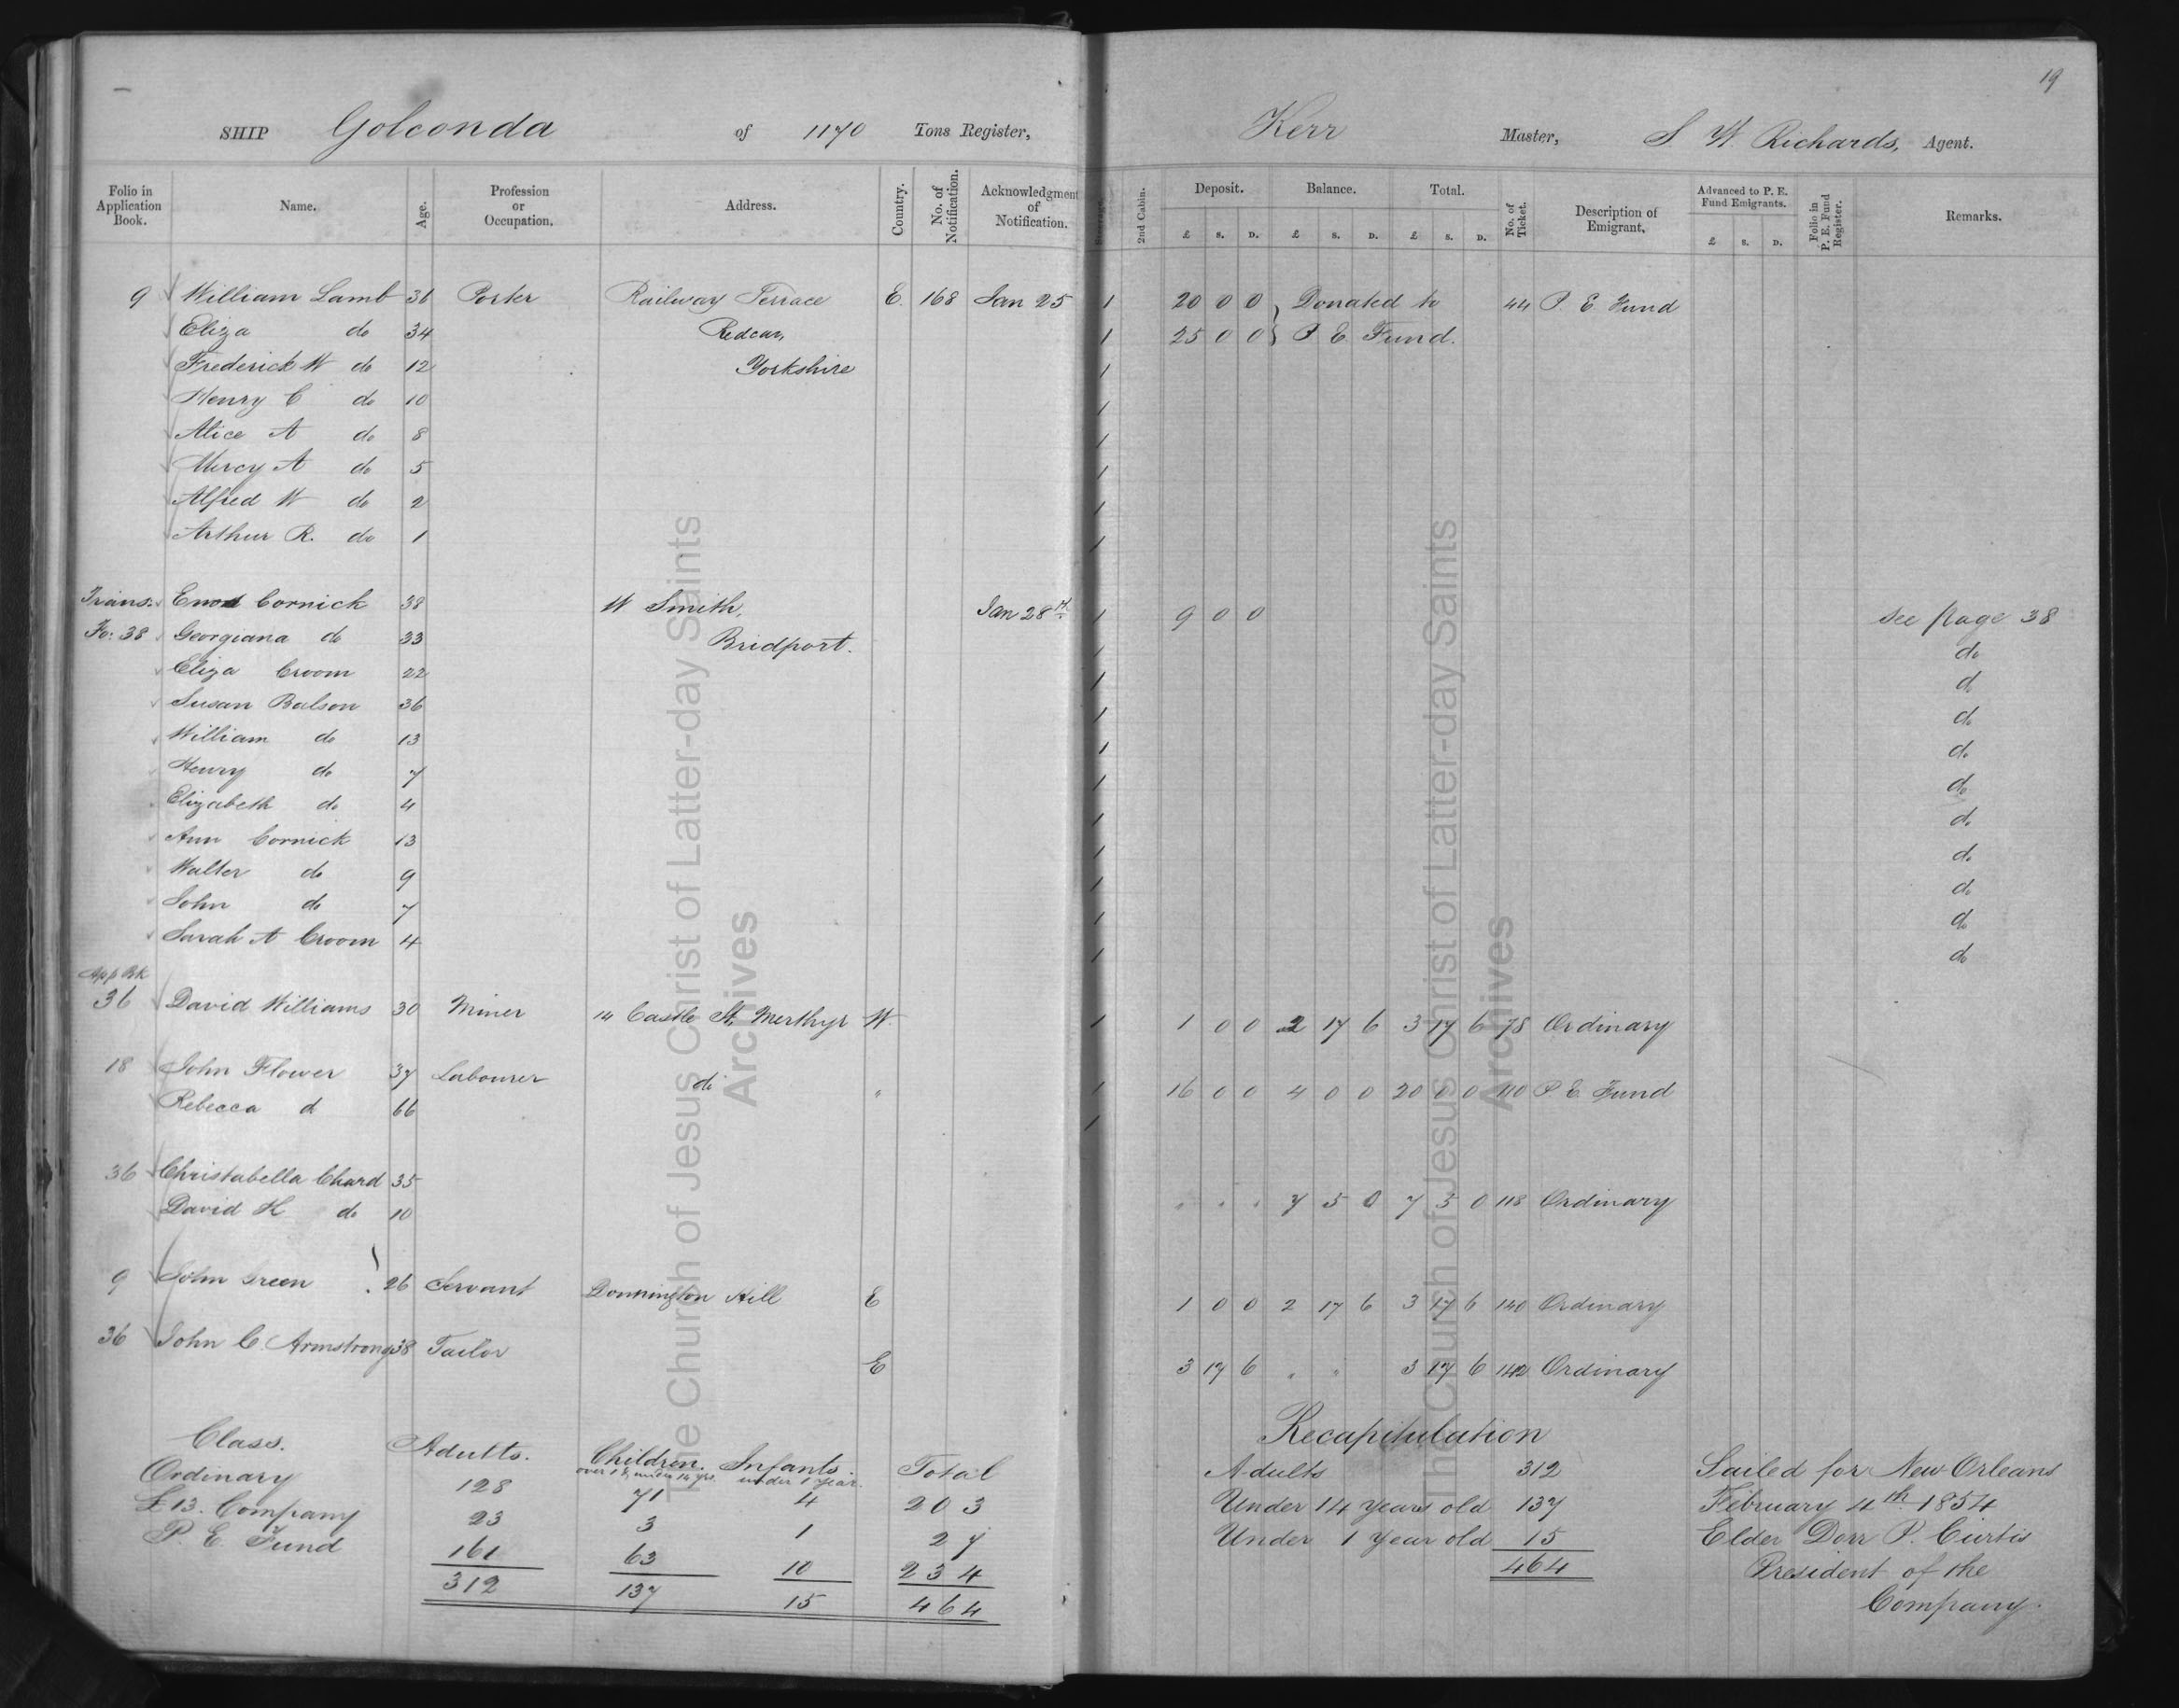 19
SHIP Golconda of 1170 Tons Register, Kerr Master, S W. Richards, Agent.
Folio in Application Book. Name. Age. Profession or Occupation. Address. Country. No. of Notification. Acknowledgment of Notification. 2nd Cabin. Deposit. Balance. Total. No. of Ticket. Description of Emigrant. Advanced to P. E. Fund Emigrants. Folio in P. E. Fund Register. Remarks.
£ s. D. £ s. D. £ s. D. £ s. D.
9 William Lamb 36 Porter Railway Terrace E. 168 Jan 25 1 20 0 0 } Donated to 44 P. E Fund
Eliza do 34 Redcar, 1 25 0 0 } P E Fund.
Frederick W do 12 Yorkshire 1
Henry C do 10 1
Alice A do 8 1
Mercy A do 5 1
Alfred W do 2 1
Arthur R. do 1 1
Trans. Enos Cornick 38 W Smith, Jan 28th 1 9 0 0 See page 38
Fo: 38 Georgiana do 33 Bridport. 1 do
Eliza Croom 22 1 do
Susan Balson 36 1 do
William do 13 1 do
Henry do 7 1 do
Elizabeth do 4 1 do
Ann Cornick 13 1 do
Walter do 9 1 do
John do 7 1 do
Sarah A Croom 4 1 do
App Bk
36 David Williams 30 Miner 14 Castle St, Merthyr W. 1 1 0 0 2 17 6 3 17 6 78 Ordinary
18 John Flower 37 Labourer do " 1 16 0 0 4 0 0 20 0 0 110 P. E. Fund
Rebecca d 66 1
36 Christabella Chard 35
David H do 10 " " " 7 5 0 7 5 0 118 Ordinary
9 John Green 26 Servant Donnington Hill E 1 0 0 2 17 6 3 17 6 140 Ordinary
36 John C. Armstrong 38 Tailor E 3 17 6 " " 3 17 6 142 Ordinary
Class. Adults. Children. over 1 & under 14 yrs. Infants under 1 year. Total
Ordinary 128 71 4 203
£13. Company 23 3 1 27
P. E. Fund 161 63 10 234
312 137 15 464
Recapitulation
Adults 312
Under 14 years old 137
Under 1 year old 15
464
Sailed for New Orleans
February 4th 1854
Elder Dorr P. Curtis
President of the
Company.
The Church of Jesus Christ of Latter-day Saints
Archives
The Church of Jesus Christ of Latter-day Saints
Archives